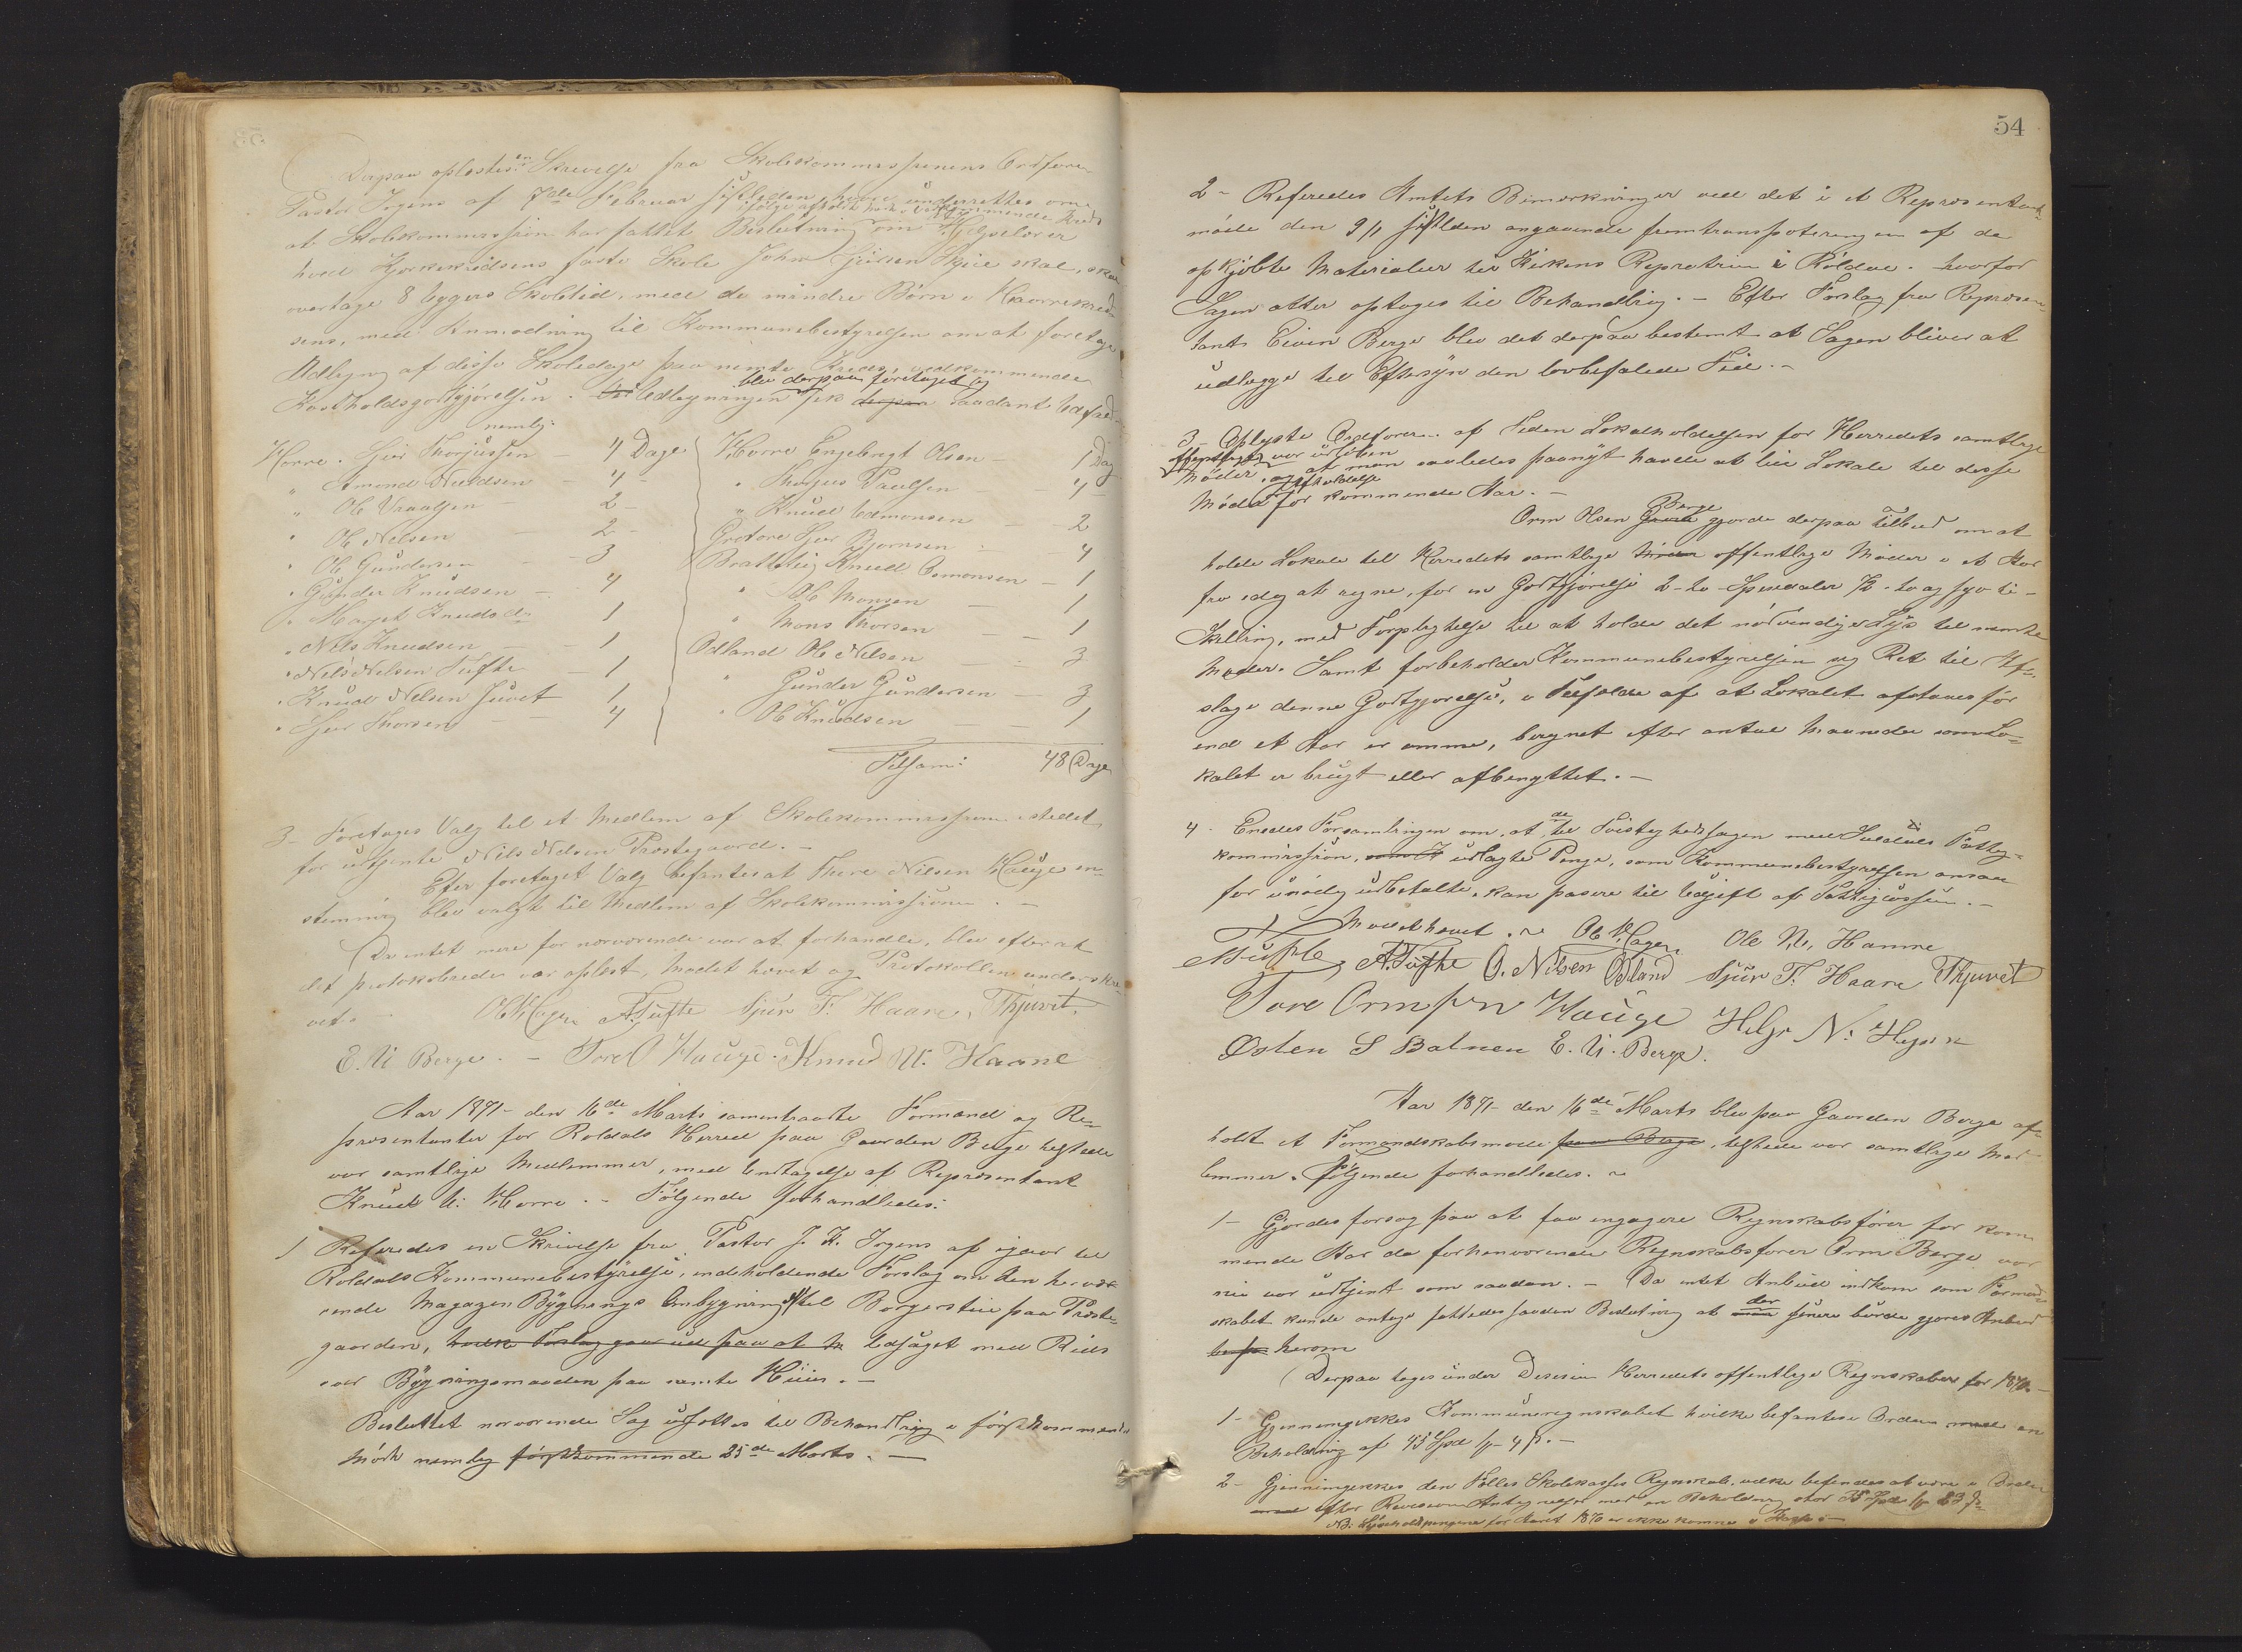 Derpaa oplæstes en Skrivelse fra Skolekommissjonens Ordfører
Pastor Irgens af 7de Februar sistleden, hvori underrettes om
ifølge afholdt Møde i vedkommende Kreds
at Skolekommissjon har fattet Beslutning om Hjælpelærer
hved Kreds faste Skole John skal,
overtage 8 Uggers Skoletid, med de mindre Børn i Horrekred-
sens, med Anmodning til Kommunebestyrelsen om at foretage
Udligning af disse Skoledage paa nemte Kreds, vedkommende
blev derpaa foretaget og
Kostholdsgodtgjørelsen. Udligningen fik derpaa saadant Udfald
nemlig:
Horre. Sjur Thorjussen - 4 Dage Horre Engebregt Olsen - 1 Dag
" Amund Knudsen - 4 - " Thorjus Paulsen - 4 -
" Ole Vraalsen 2 - " Knud Osmonsen - 2
" Ole Nelsen - 2 - Grotore Sjur Bjørnsen - 4
" Ole Gundersen - 3 Brattelig Knud Osmonsen - 1
" Gunder Knudsen - 4 " Ole Monsen - 1
" Marget Knudsd. 1 " Mons Thorsen - 1
" Nils Knudsen - 1 Odland Ole Nelsen - 3
" Nils Nelsen Tufte - 1 " Gunder Gundersen - 3
" Knud Nelsen Juvet 1 " Ole Knudsen - 1
" Sjur Thorsen - 4
Tilsam: 48 Dage
3- Foretages Valg til et Medlem af Skolekommissjonen istedet
for udtjente Nils Nelsen Prostegaard. -
Efter foretaget Valg befantes at Thore Nilsen Hauge en-
stemmig blev valgt til Medlem af Skolekommissjonen. -
Da intet mere for nærværende var at forhandle, blev efter at
det protokolerede var oplæst, Mødet hævet og Protokollen underskre-
vet. -
Ole Hagen A. Tufte Sjur T. Haare, Thjuvet,
E. N. Berge. - Tore O Hauge. Knud N. Haare
Aar 1871 - den 16de Marts sammentraadte Formænd og Re-
præsentanter for Røldals Herred paa Gaarden Berge tilstede
var samtlige Medlemmer, med Undtagelse af Repræsentant
Knud N. Horre. - Følgende forhandledes:
1 Referedes en Skrivelse fra Pastor J. K. Irgens af igaar til
Roldals Kommunebestyrelse, indeholdende Forslag om den hervæ-
rende Magazin Bygnings Ombygning til Borgerstue paa Præste-
gaarden, hvilke Forslag gaar ud paa at Ledsaget med Rids
over Bygningsmaaden paa nemte Huus. -
Besluttet nærværende Sag udsættes til Behandling i førstkommende
Møde nemlig førstkommende 25de Marts. -
54
2 - Referedes Amtets Bemærkninger ved det i et Repræsentant-
møde den 9/1 sistleden angaaende fremtransporteringen af de
opkjøbte Materialier til Kirkens Repration i Røldal. hvorfor
Sagen atter optages til Behandling. - Efter Forslag fra Repræsen-
tant Eivin Berge blev det derpaa bestemt at Sagen bliver at
udlægge til Eftersyn den lovbefalede Tid. -
3 - Oplyste Ordfører af Tiden Lokalholdelsen for Herredets samtlige
offentlige var udløben
Møder, og at man saaledes paanyt havde at leie Lokale til disse
afholdelse
Møder for kommende Aar. -
Berge
Orm Olsen gjorde derpaa Tilbud om at
holde Lokale til Herredets samtlige Møder offentlige Møder i et Aar
fra idag at regne, for en Godtgjørelse 2 - to - Speciedaler 72 - to og syvti -
Skilling, med Forpligtelse til at holde det nødvendige Lys til mørke
Møder. Samt forbeholder Kommunebestyrelsen sig Ret til Af-
slage denne Godtgjørelse, i Tilfælde af at Lokalet afstaaes før
end et Aar er omme, beregnet efter antal Maaneder som Lo-
kalet er brugt eller afbenyttet. -
4 - Enedes Forsamlingen om, at de til Tvistighedssagen med Suldals Fattig-
kommissjon, udlagte Penge, som Kommunebestyrelsen ansaa
for unødig udbetalte, kan pasere til Udgift af Fattigkassen. -
Mødet hævet. - Ole Hagen, Ole N. Hamre
Tufte, A. Tufte O. Nilsen Ødland Sjur T. Haare Thjuvet
Tore Ormsen Hauge Helge N. Hagen
Østen S Botnen E. N. Berge.
Aar 1871 - den 16de Marts blev paa Gaarden Berge af-
holdt et Formandskabsmøde paa Berge, tilstede var samtlige Med-
lemmer. Følgende forhandledes. -
1 - Gjordes forsøg paa at faa engagere Regnskabsfører for kom-
mende Aar da forhenværende Regnskabsfører Orm Berge var
nu var udtjent som saadan. - Da intet Anbud indkom som Formand-
der
skabet kunde antage fattedes saadan Beslutning at man senere burde gjøres Anbud
herom
Derpaa toges under Desision Herredets offentlige Regnskaber for 1870 -
1 - Gjennemgikkes Kommuneregnskabet hvilke befantes i Orden med en
Beholdning af 45 Spd - 4 s. -
2 - Gjennemgikkes den Fælles Skolekasses Regnskab, hvilke befandes at være i Orden
med efter Revisions Antegnelser med en Beholdning stor 35 Spd 83 s
NB. for Aaret 1870 er ikke komne i Kasse -